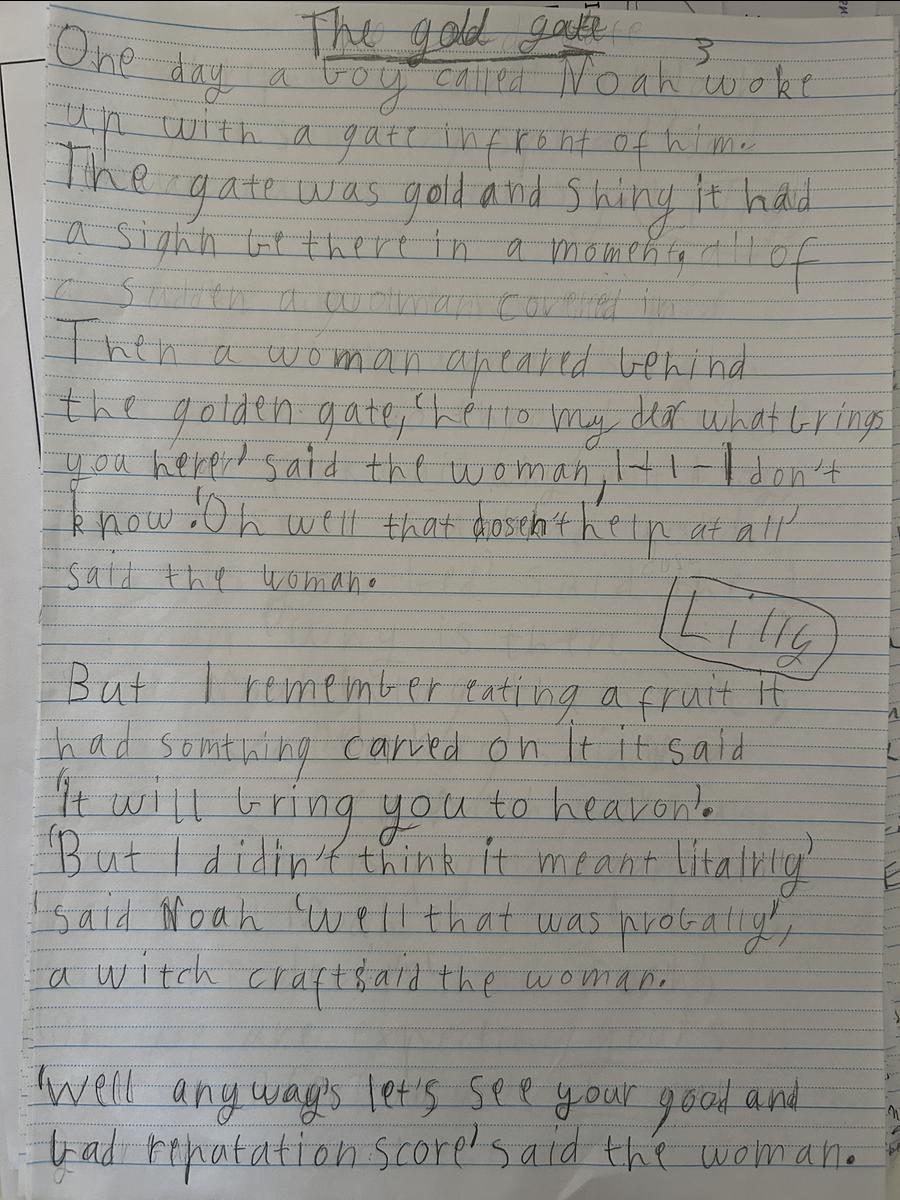 The gold gate
3
One day a boy called Noah woke
up with a gate infront of him.
The gate was gold and Shing it had
a sighn be there in a moment, all of
a Sudden a woman covered in
Then a woman apeared behind
the golden gate, 'hello my dear what brings
you here' said the woman, I-I-I don't
know. 'Oh well that dosen't help at all'
said the woman.
Lilly
But I remember eating a fruit it
had somthing carved on it it said
"It will bring you to heavon'.
'But I didin't think it meant litalrly'
said Noah 'well that was probally',
a witch craft said the woman.
'Well anyway's let's see your good and
bad repatation score' said the woman.